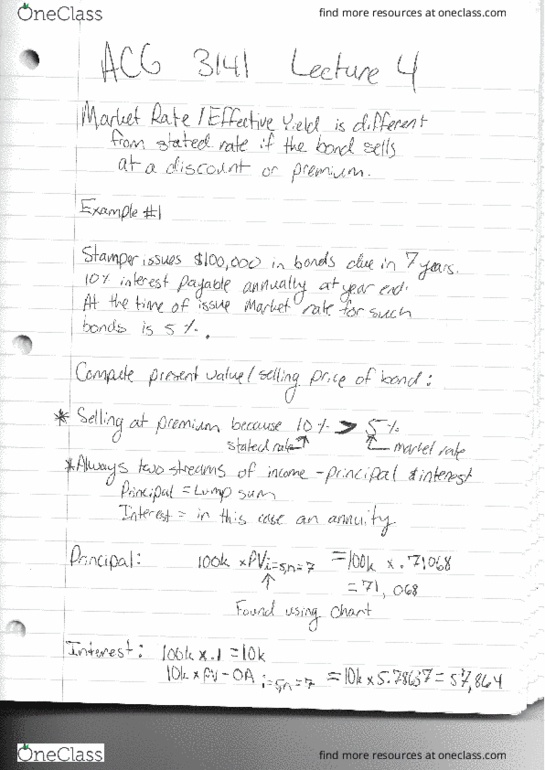 OneClass find more resources at oneclass.com
ACG 3141 Lecture 4
Market Rate / Effective Yield is different
from stated rate if the bond sells
at a discount or premium.
Example #1
Stamper issues $100,000 in bonds due in 7 years.
10% interest payable annually at year end.
At the time of issue Market rate for such
bonds is 5%.
Compute present value/selling price of bond:
* Selling at premium because 10% > 5%
stated rate market rate
*Always two streams of income - principal & interest
Principal = Lump sum
Interest = in this case an annuity
Principal: 100k x PVi=5n=7 =100k x .71068
=71,068
Found using chart
Interest: 100k x .1 = 10k
10k x PV-OA i=5n=7 =10k x 5.78637 = 57,864
OneClass find more resources at oneclass.com